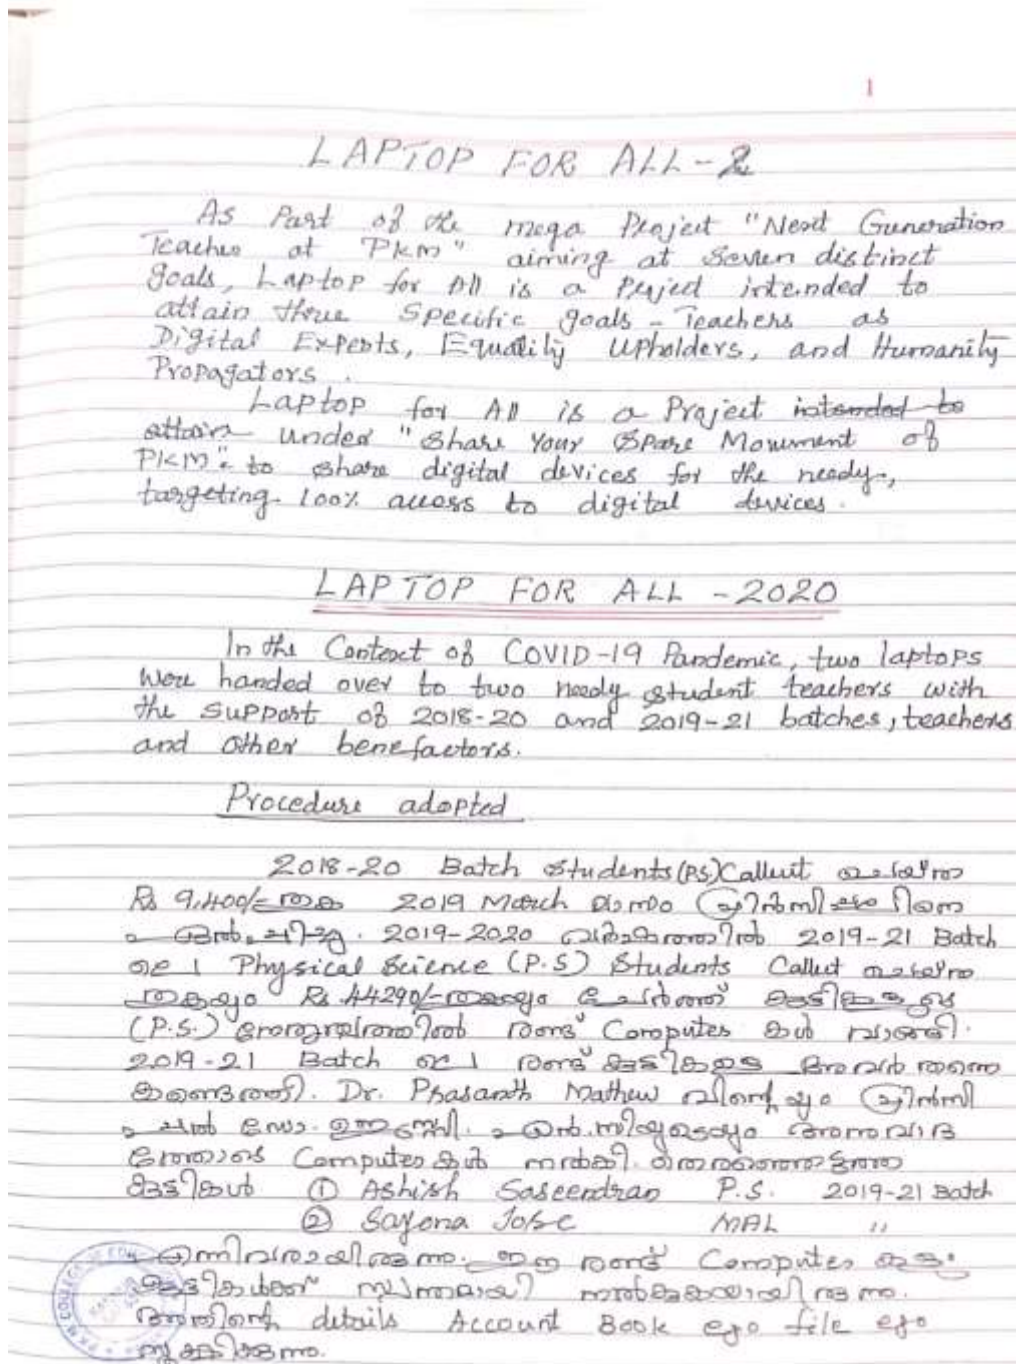 1
LAPTOP FOR ALL - 2
As Part of the mega Project "Next Generation
Teacher at PKM" aiming at Seven distinct
goals, Laptop for All is a Project intended to
attain three Specific goals - Teachers as
Digital Experts, Equality Upholders, and Humanity
Propagators.
Laptop for All is a Project intended to
attain under "Share Your Spare Monument of
PKM" to share digital devices for the needy,
targeting 100% access to digital devices.
LAPTOP FOR ALL - 2020
In the Context of COVID-19 Pandemic, two laptops
were handed over to two needy student teachers with
the support of 2018-20 and 2019-21 batches, teachers
and other benefactors.
Procedure adopted
2018-20 Batch Students (PS) Callect ചെയ്ത
Rs 9,400/= തുക 2019 March മാസം പ്രിൻസിപ്പലിനെ
ഏൽപ്പിച്ചു. 2019-2020 വർഷത്തിൽ 2019-21 Batch
ലെ Physical Science (P.S) Students Callect ചെയ്ത
തുകയും Rs 44290/- തുകയും ചേർത്ത് കുട്ടികളുടെ
(P.S.) നേതൃത്വത്തിൽ രണ്ട് Computer കൾ വാങ്ങി.
2019-21 Batch ലെ രണ്ട് കുട്ടികളെ അവർ തന്നെ
കണ്ടെത്തി. Dr. Prasanth Mathew വിന്റെയും പ്രിൻസി
പ്പൽ ഡോ. എൻ.സിയുടെയും അനുവാദ
ത്തോടെ Computer കൾ നൽകി. തെരഞ്ഞെടുത്ത
കുട്ടികൾ ① Ashish Saseendran P.S. 2019-21 Batch
② Sayona Jose MAL "
എന്നിവരായിരുന്നു. ഈ രണ്ട് Computer കളും
കുട്ടികൾക്ക് സ്വന്തമായി നൽകുകയായിരുന്നു.
അതിന്റെ details Account Book ലും file ലും
സൂക്ഷിക്കുന്നു.